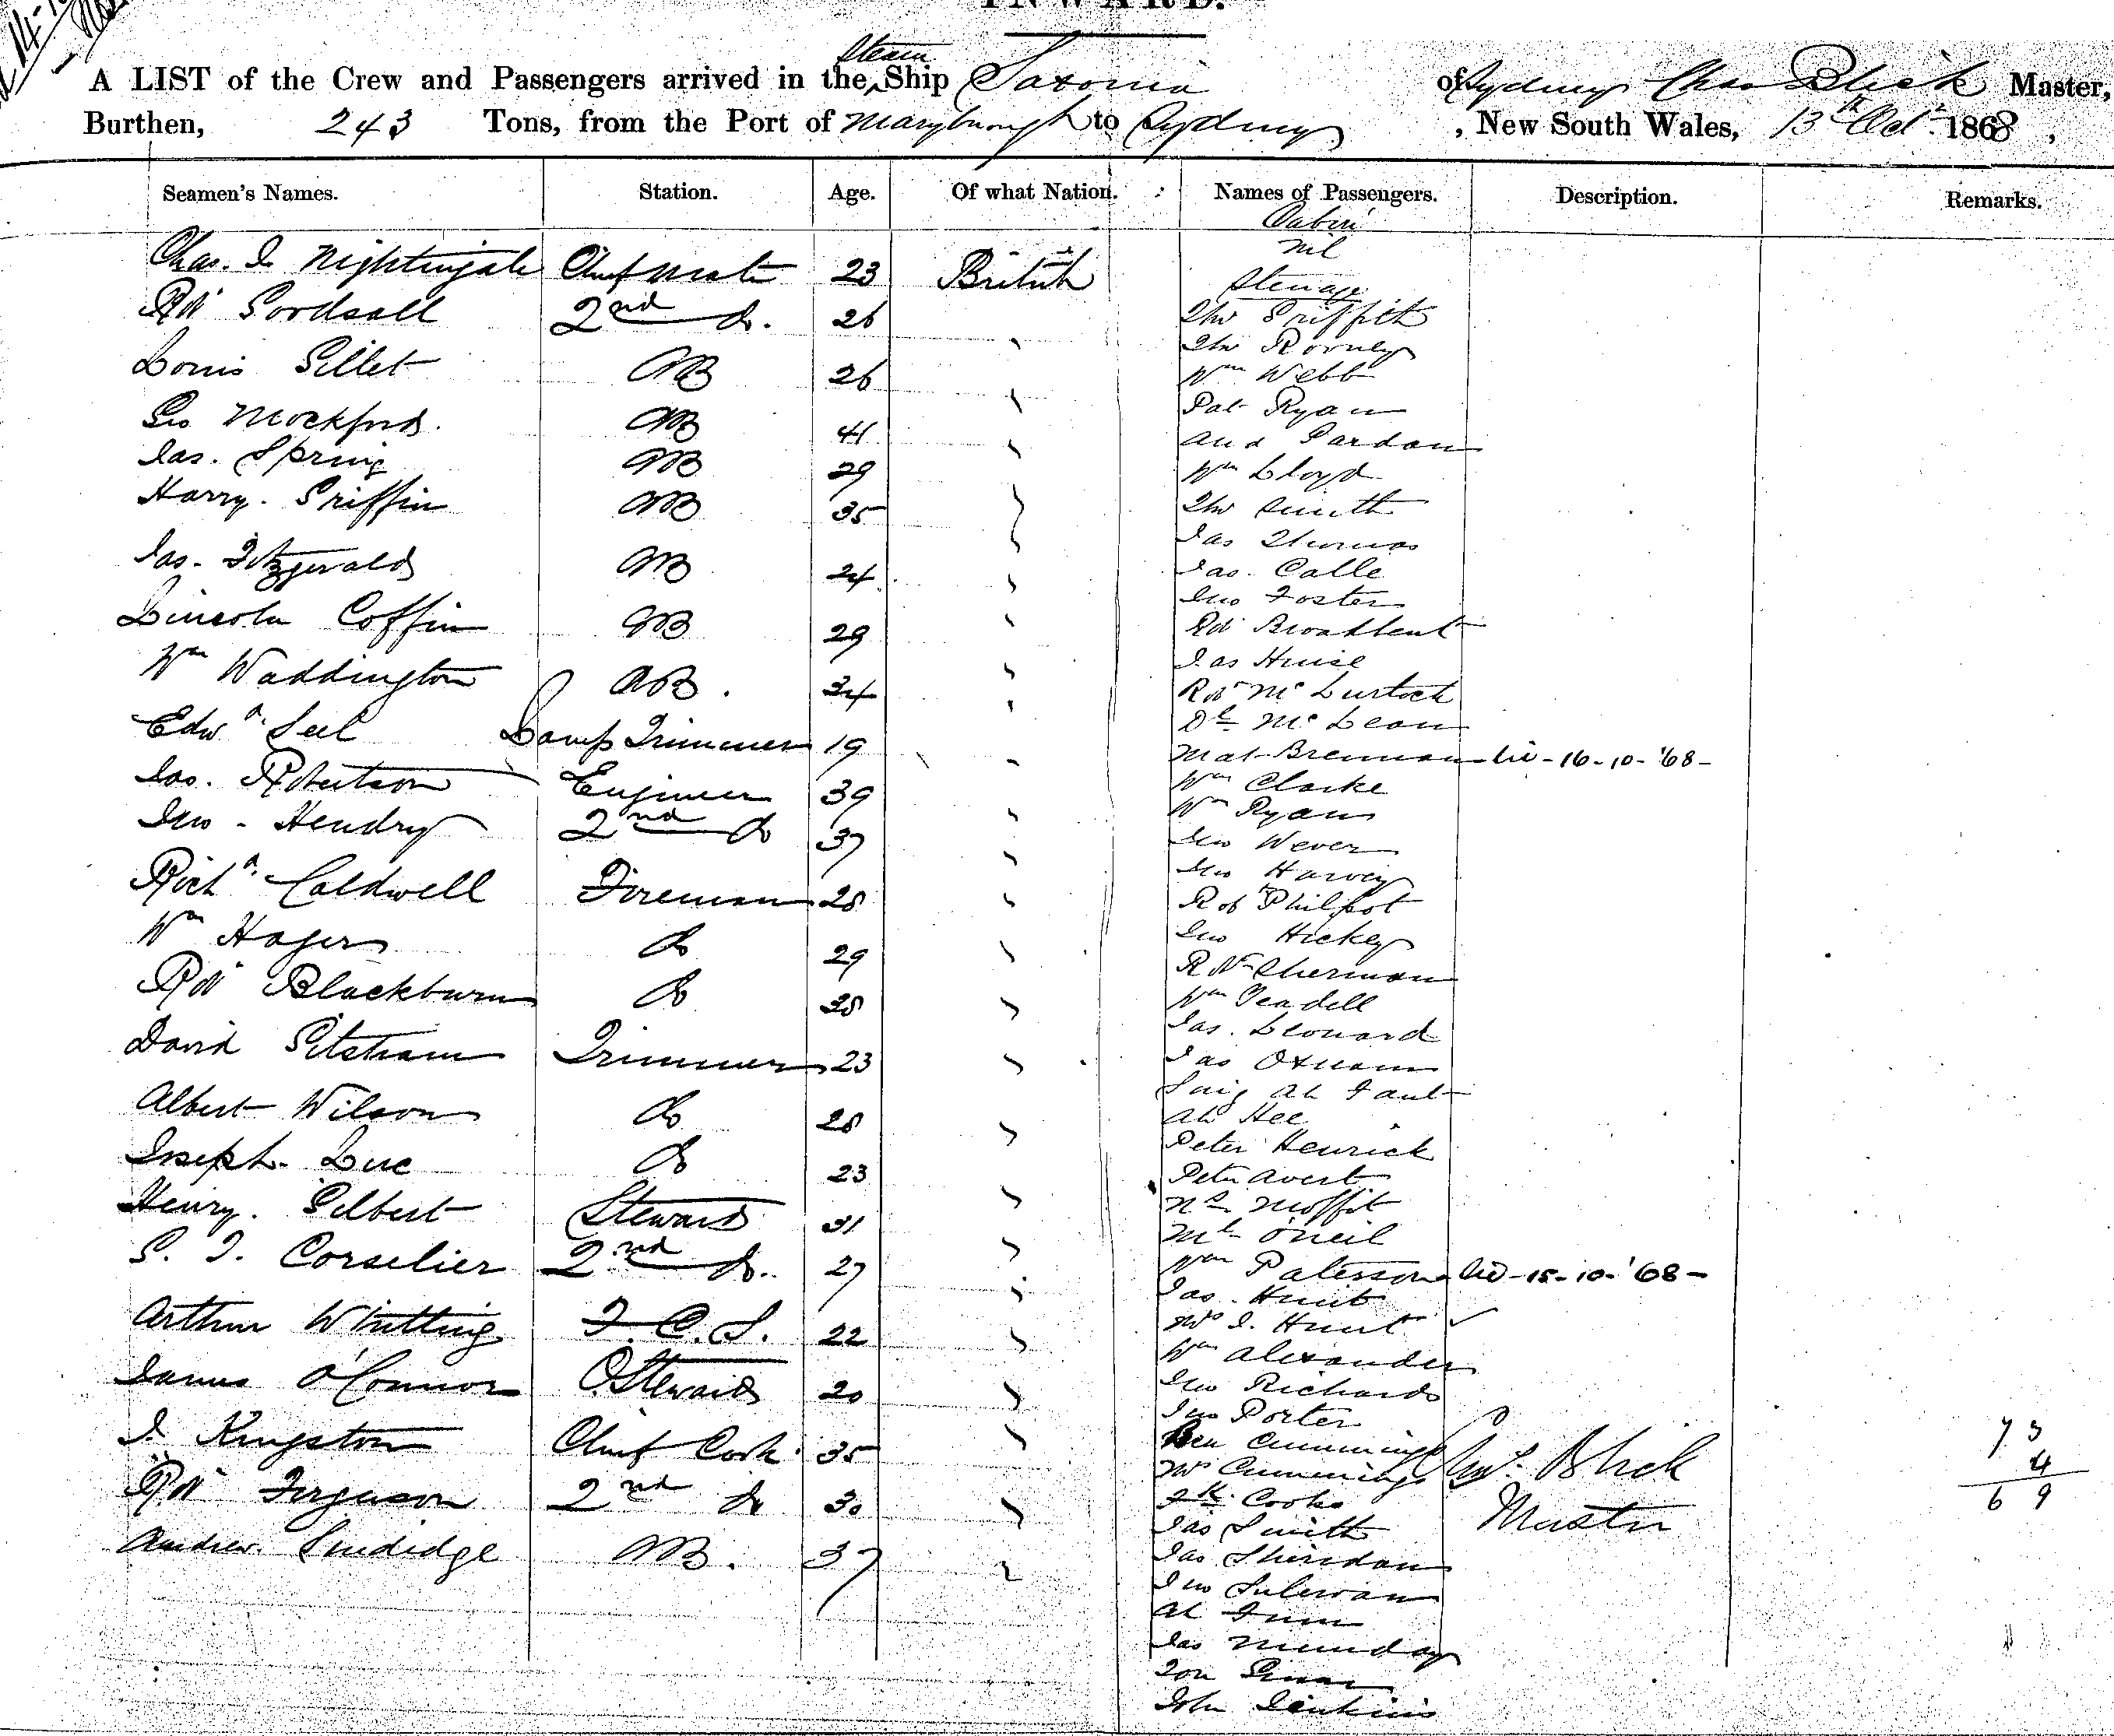 INWARD.
A LIST of the Crew and Passengers arrived in the Steam Ship Saxonia of Sydney Chas Blick Master,
Burthen, 243 Tons, from the Port of Maryburough to Sydney, New South Wales, 13th Oct. 1868,
Seamen's Names. Station. Age. Of what Nation. Names of Passengers. Description. Remarks.
Cabin
nil
Chas. I Nightingale Chief Mate 23 British
Steerage
Rbt Goodsall 2nd do. 26
Griffith
Louis Gillet AB 26
Romley
Wm Webb
Geo Mockford. AB 41
Pat Ryan
Jas. Spring AB 29
Pardon
Harry. Griffin AB 35
Wm Lloyd
Smith
Jas. Fitzgerald AB 24
Jas Thomas
Jas. Calle
Lincoln Coffin AB 29
Jno Foster
Rbt Broadbent
Wm Waddington AB. 34
Jas Huise
Rbt Mc Lurtock
Edwd. Seel Lamp Trimmer 19
Dl McLean
Mat Brennan 16-10-'68-
Jas. Robertson Engineer 39
Wm Clarke
Jno - Hendry 2nd do 37
Wm Ryan
Jno Wever
Richd. Caldwell Fireman 28
Jno Harvey
Robt Philpot
Wm Hayes do 29
Jno Hickey
Rbt Sherman
Rbt Blackburn do 28
Wm Yeadell
Jas. Leonard
David Pitstram Trimmer 23
Jas Oxnam
Ah Faut
Albert Wilson do 28
Ah Hee
Peter Henrick
Joseph. Luc do 23
Peter Avert
Henry. Gilbert Steward 31
Moffit
Ml O'neil
G. T. Corselier 2nd do. 27
Wm Paterson 15-10-'68-
Jas. Hunt
Arthur Whitting F.C.S. 22
Mrs J. Hunt
Wm Alexander
James O'Connor O.Steward 20
Jno Richards
Jno Porter
J. Kingston Chief Cook. 35
Ben Cummings Chas. Blick 73
Mrs Cummings 4
Rbt Ferguson 2nd do 30
Fk. Cooke Master 69
Jas Smith
Andrew. AB. 37
Jas Sheridan
Jno Sulevan
Ah
Jas Munday
John Jenkins